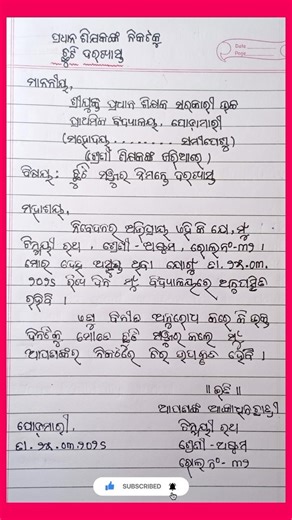 ପ୍ରଧାନ ଶିକ୍ଷକଙ୍କ ନିକଟକୁ
ଛୁଟି ଦରଖାସ୍ତ
Date
Page
ମାନନୀୟ,
ଶ୍ରୀଯୁକ୍ତ ପ୍ରଧାନ ଶିକ୍ଷକ ସରକାରୀ ଉଚ୍ଚ
ପ୍ରାଥମିକ ବିଦ୍ୟାଳୟ, ପୋଡ଼ାମାରୀ
(ମହୋଦୟ.......... ସମୀପେଷୁ)
(ଶ୍ରେଣୀ ଶିକ୍ଷକଙ୍କ ଜରିଆରେ)
ବିଷୟ: ଛୁଟି ମଞ୍ଜୁର ନିମନ୍ତେ ଦରଖାସ୍ତ
ମହାଶୟ,
ନିବେଦନର ଅଭିପ୍ରାୟ ଏହି କି ଯେ, ମୁଁ
ଚିନ୍ମୟୀ ରଥ, ଶ୍ରେଣୀ-ଅଷ୍ଟମ, ରୋଲ ନଂ-୩୨।
ମୋର ଦେହ ଅସୁସ୍ଥ ଥିବା ଯୋଗୁଁ ତା.
୨୦୨୫ ଦିନ ମୁଁ ବିଦ୍ୟାଳୟରେ ଅନୁପସ୍ଥିତ
ରହିବି।
ଏଣୁ ବିନୀତ ଅନୁରୋଧ କରେ କି ଉକ୍ତ
ଦିନଟିକୁ ମୋତେ ଛୁଟି ମଞ୍ଜୁର କଲେ ମୁଁ
ଆପଣଙ୍କର ନିକଟରେ ଚିର ଉପକୃତ ହେବି।
॥ଇତି॥
ଆପଣଙ୍କ ଆଜ୍ଞାଧୀନ ଛାତ୍ରୀ
ପୋଡ଼ାମାରୀ, ଚିନ୍ମୟୀ ରଥ
ତା. ୦୩.୨୦୨୫ ଶ୍ରେଣୀ-ଅଷ୍ଟମ
ରୋଲ ନଂ- ୩୨
SUBSCRIBED